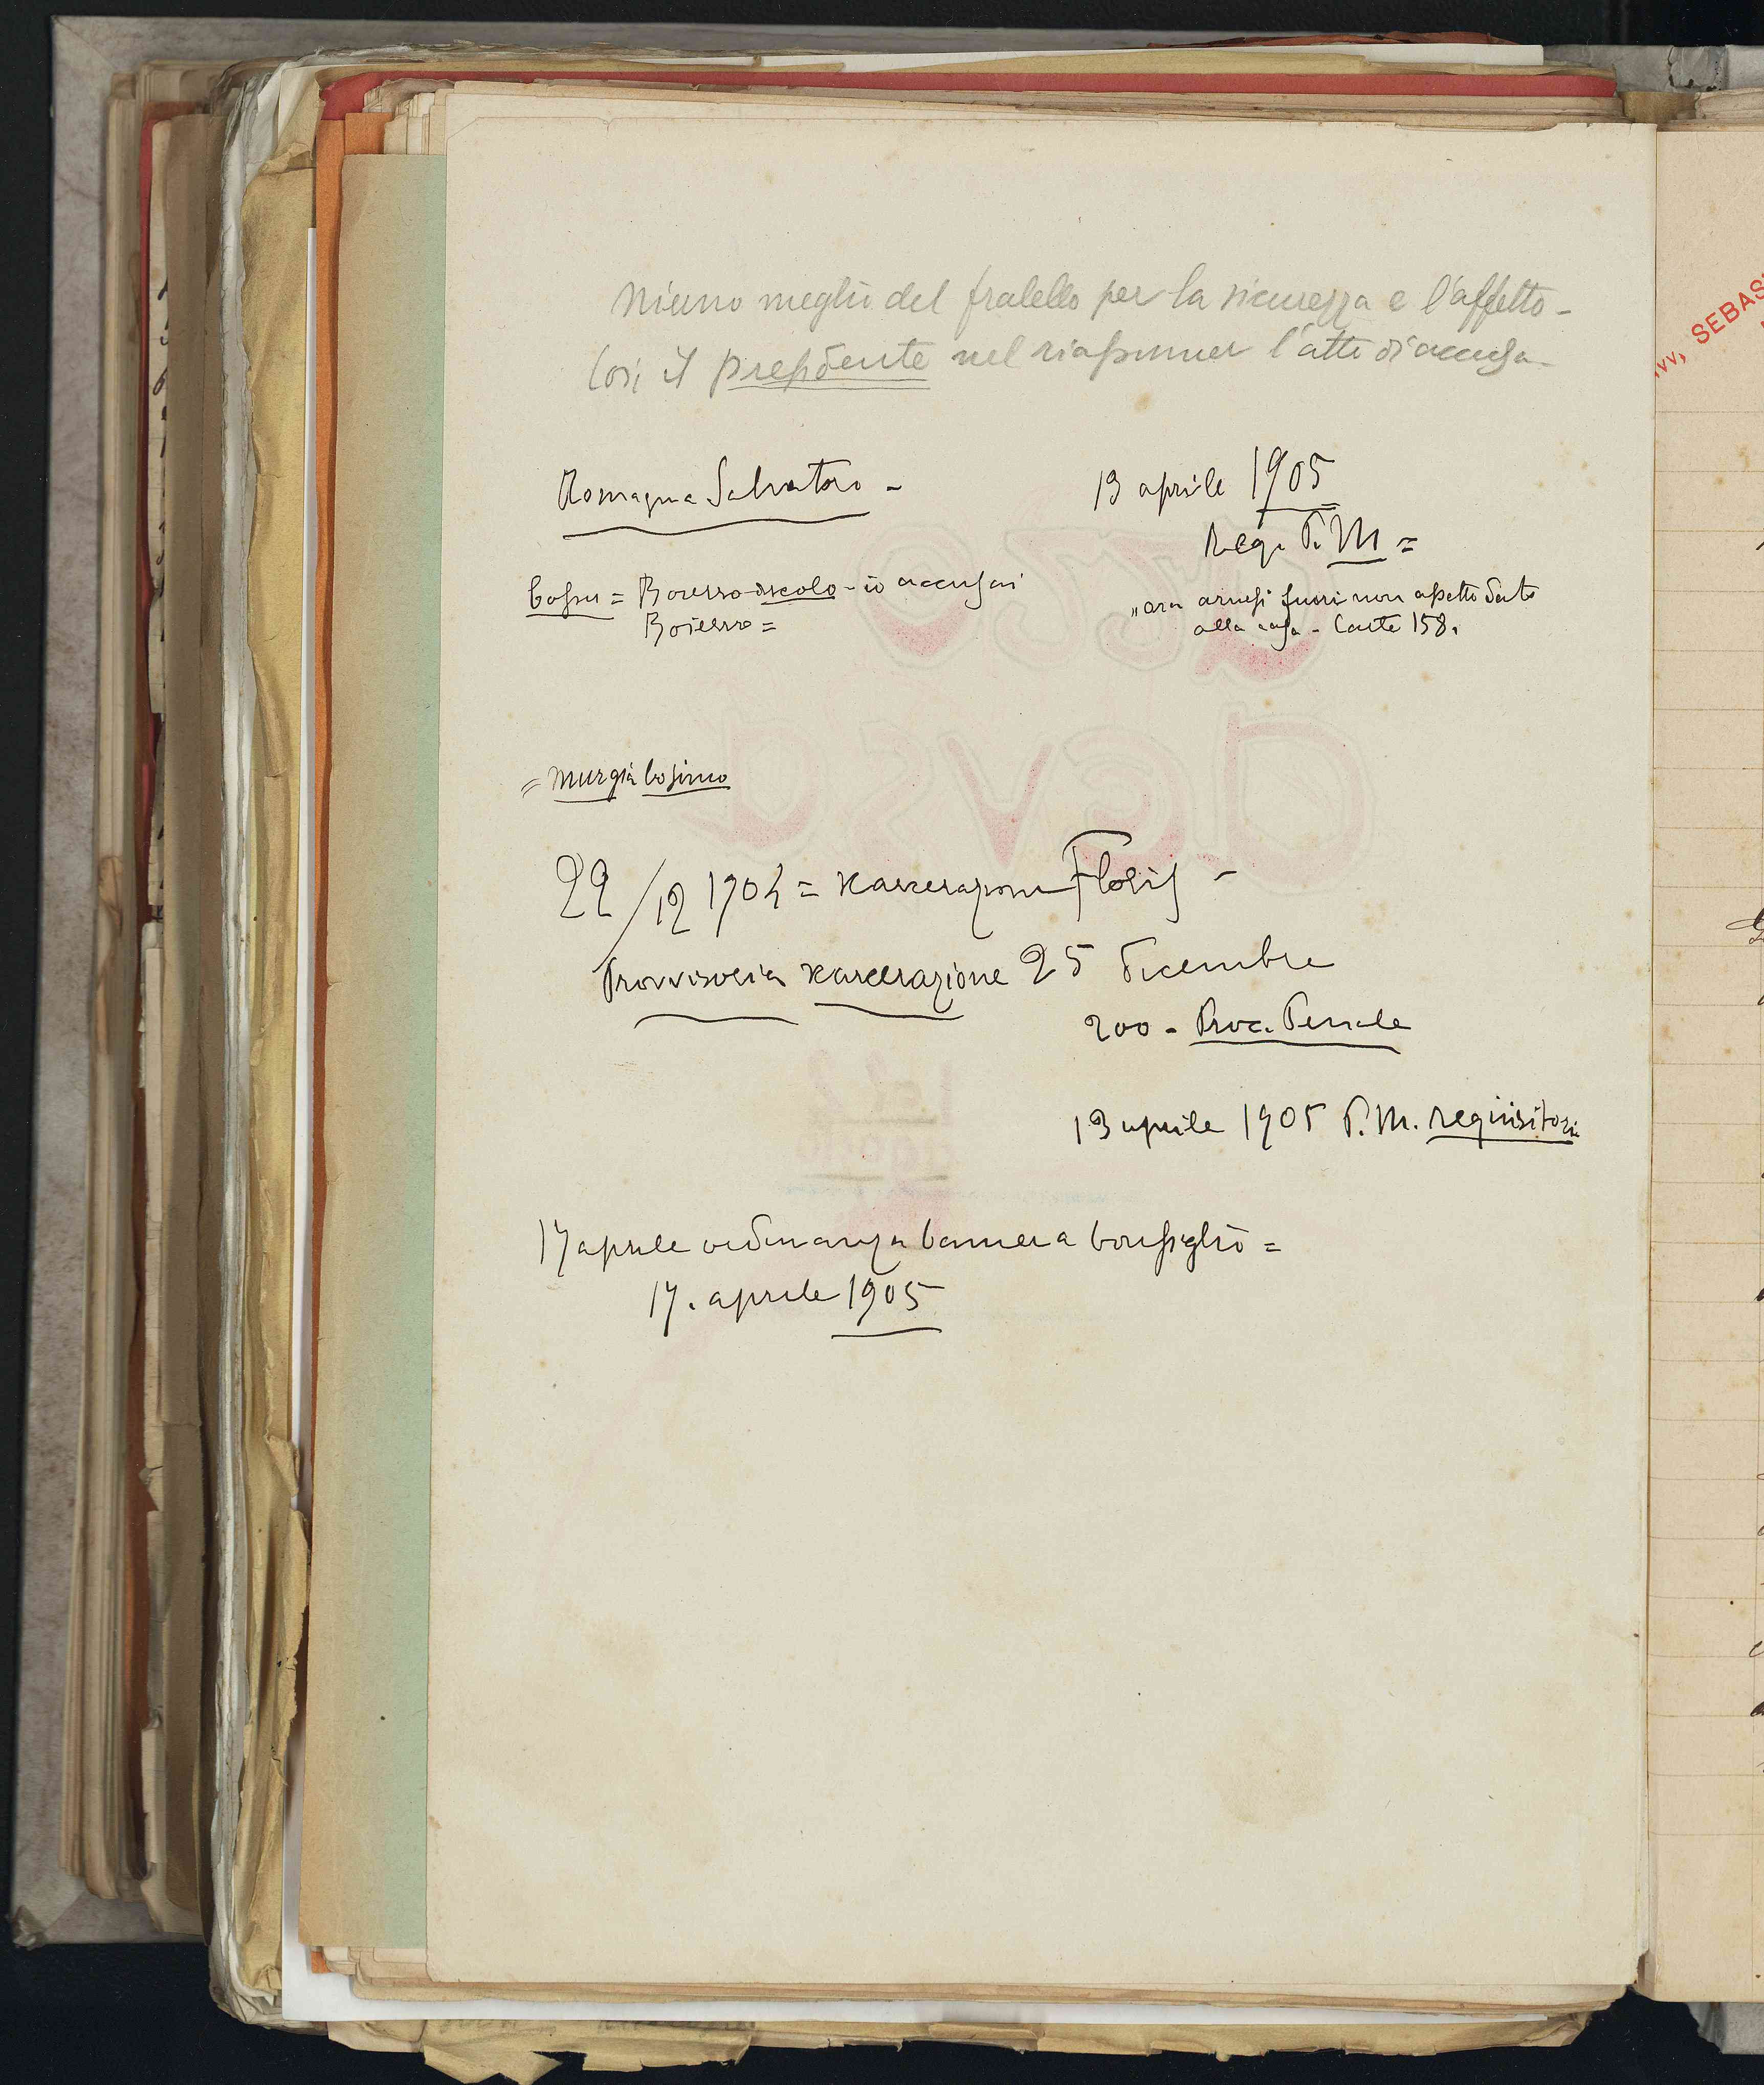 Niuno meglio del fratello per la sicurezza e l'affetto -
Così il presidente nel riassumer l'atto di accusa -
Romagna Salvatore -
13 aprile 1905
Req. P. M =
Cossu = Boresso - io accusai
"ora fuori non aspetto
alla casa - Carte 158.
= Murgia Cosimo
22/12 1904 = scarcerazione Floris -
Provvisoria scarcerazione 25 Dicembre
200 - Proc. Penale
13 aprile 1905 P. M. requisitoria
17 aprile ordinanza Camera Consiglio =
17. aprile 1905
avv. SEBAS